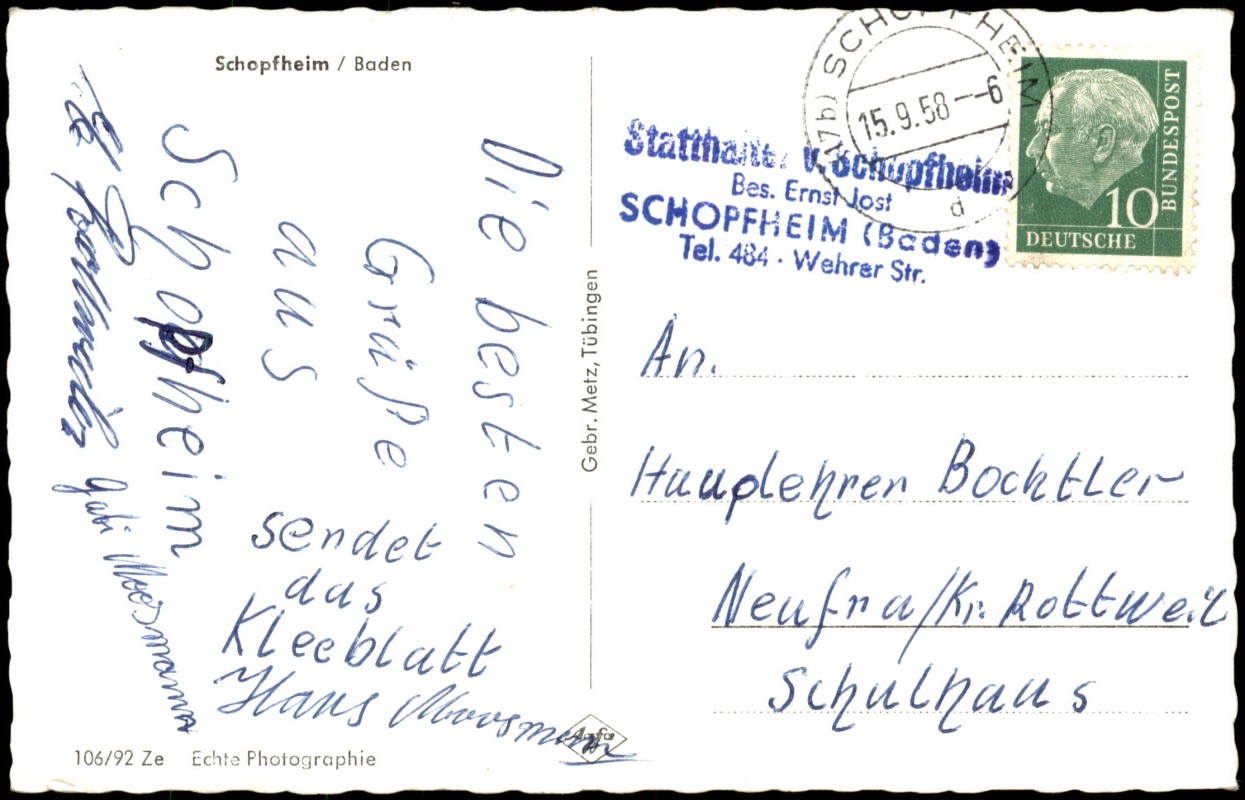 Schopfheim / Baden
Die besten
Grüße
aus
Schopfheim
sendet
das
Kleeblatt
Hans Moosmann
Gabi Moosmann
106/92 Ze Echte Photographie
Gebr. Metz, Tübingen
Agfa
(17b) SCHOPFHEIM
15.9.58--6
d
Statthalter v. Schopfheim
Bes. Ernst Jost
SCHOPFHEIM (Baden)
Tel. 484 · Wehrer Str.
10
DEUTSCHE
BUNDESPOST
An.
Hauplehrer Bochtler
Neufra/Kr. Rottweil
Schulhaus